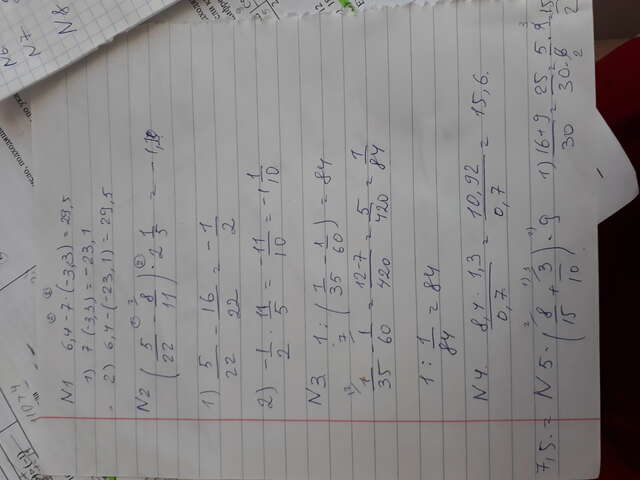 N1 6,4 - 7 · (-3,3) = 29,5
1) 7 (-3,3) = -23,1
2) 6,4 - (-23,1) = 29,5
N2 (5/22 - 8/11) · 2 1/5 = -1,1
1) 5/22 - 16/22 = -1/2
2) -1/2 · 11/5 = -11/10 = -1 1/10
N3. 1 : (1/35 - 1/60) = 84
1/35 - 1/60 = 12-7/420 = 5/420 = 1/84
1 : 1/84 = 84
N4. 8,4 · 1,3/0,7 = 10,92/0,7 = 15,6.
7,5. = N5 · (8/15 + 3/10) · 9 1) 16+9/30 = 25/30 = 5/6 · 9 = 15/2
N6
N7
N8